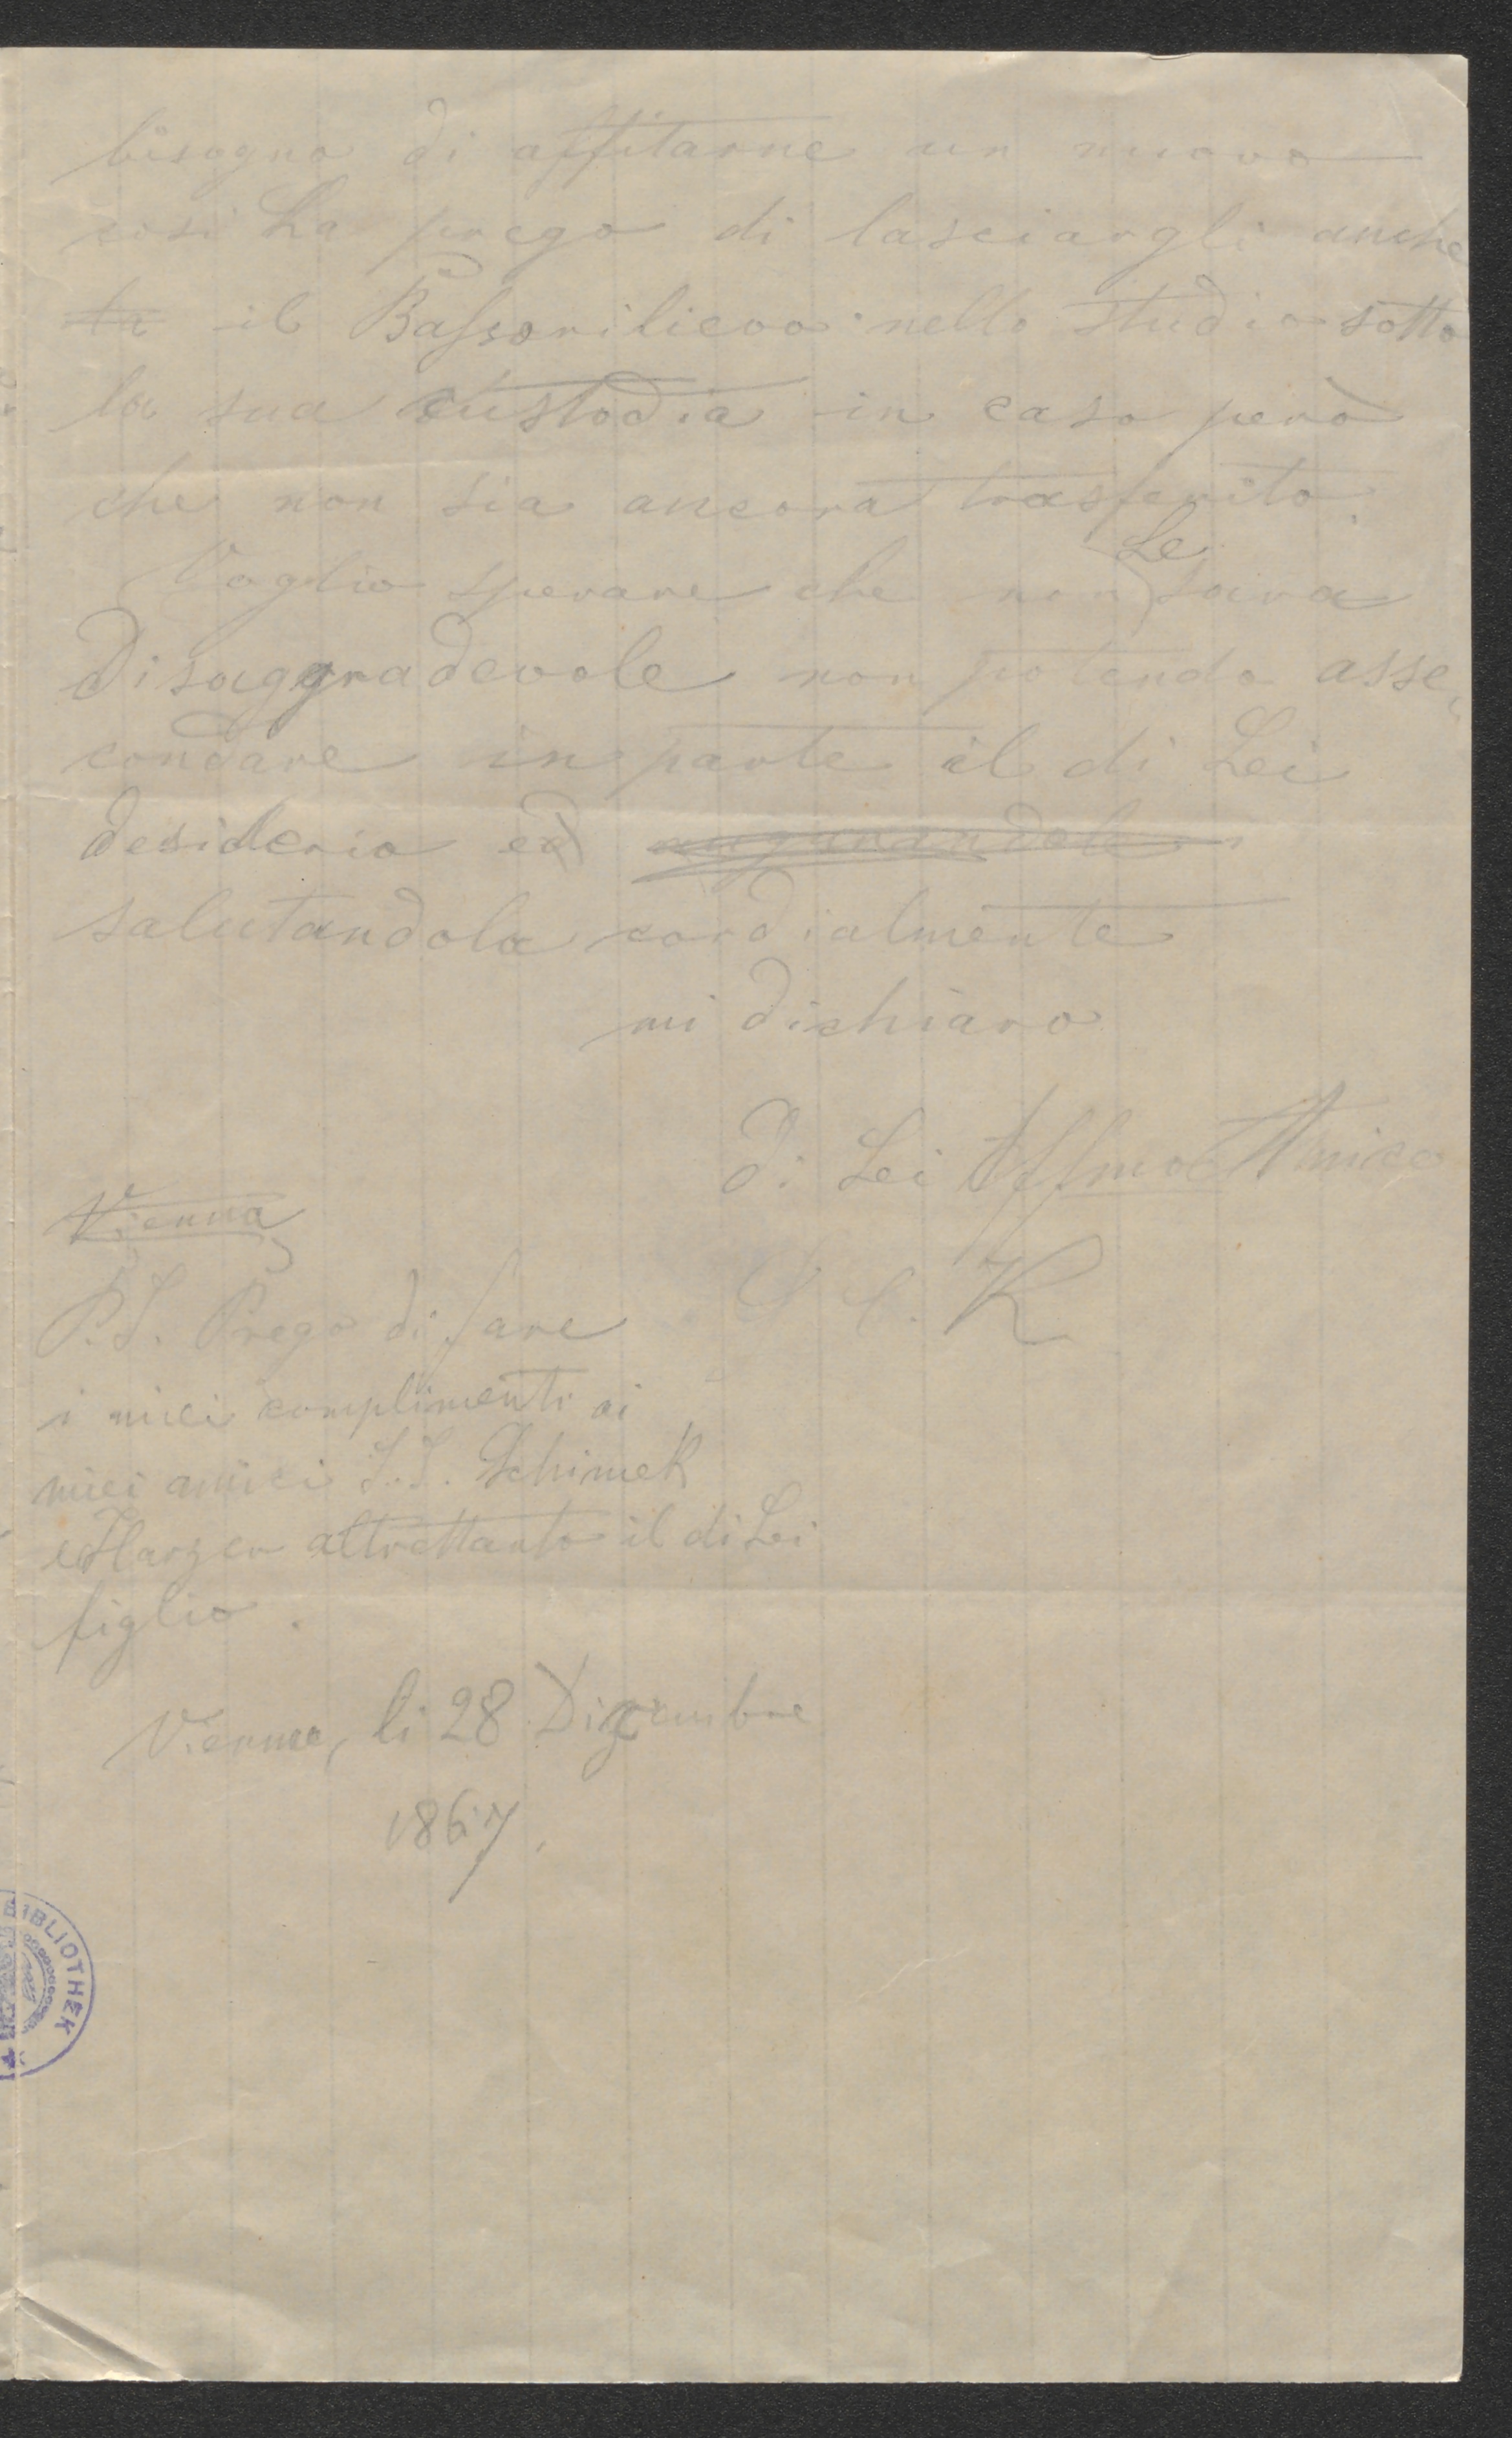 bisogno di affitarne un nuovo
cosi La prego di lasciargli anche
la il Bassorilievo nello studio sotto
la sua custodia in caso però
che non sia ancora trasferito.
Voglio sperare che non Le sara
disaggradevole non potendo asse
condare in parte il di Lei
desiderio ed augurandole
salutandola cordialmente
mi dichiaro
di Lei Affmo Amico
C. K
Vienna
P.S. Prego di fare
i miei complimenti ai
miei amici S.S. Schimek
e altrettanto il di Lei
figlio.
Vienna, li 28 Dicembre
1867.
BIBLIOTHEK